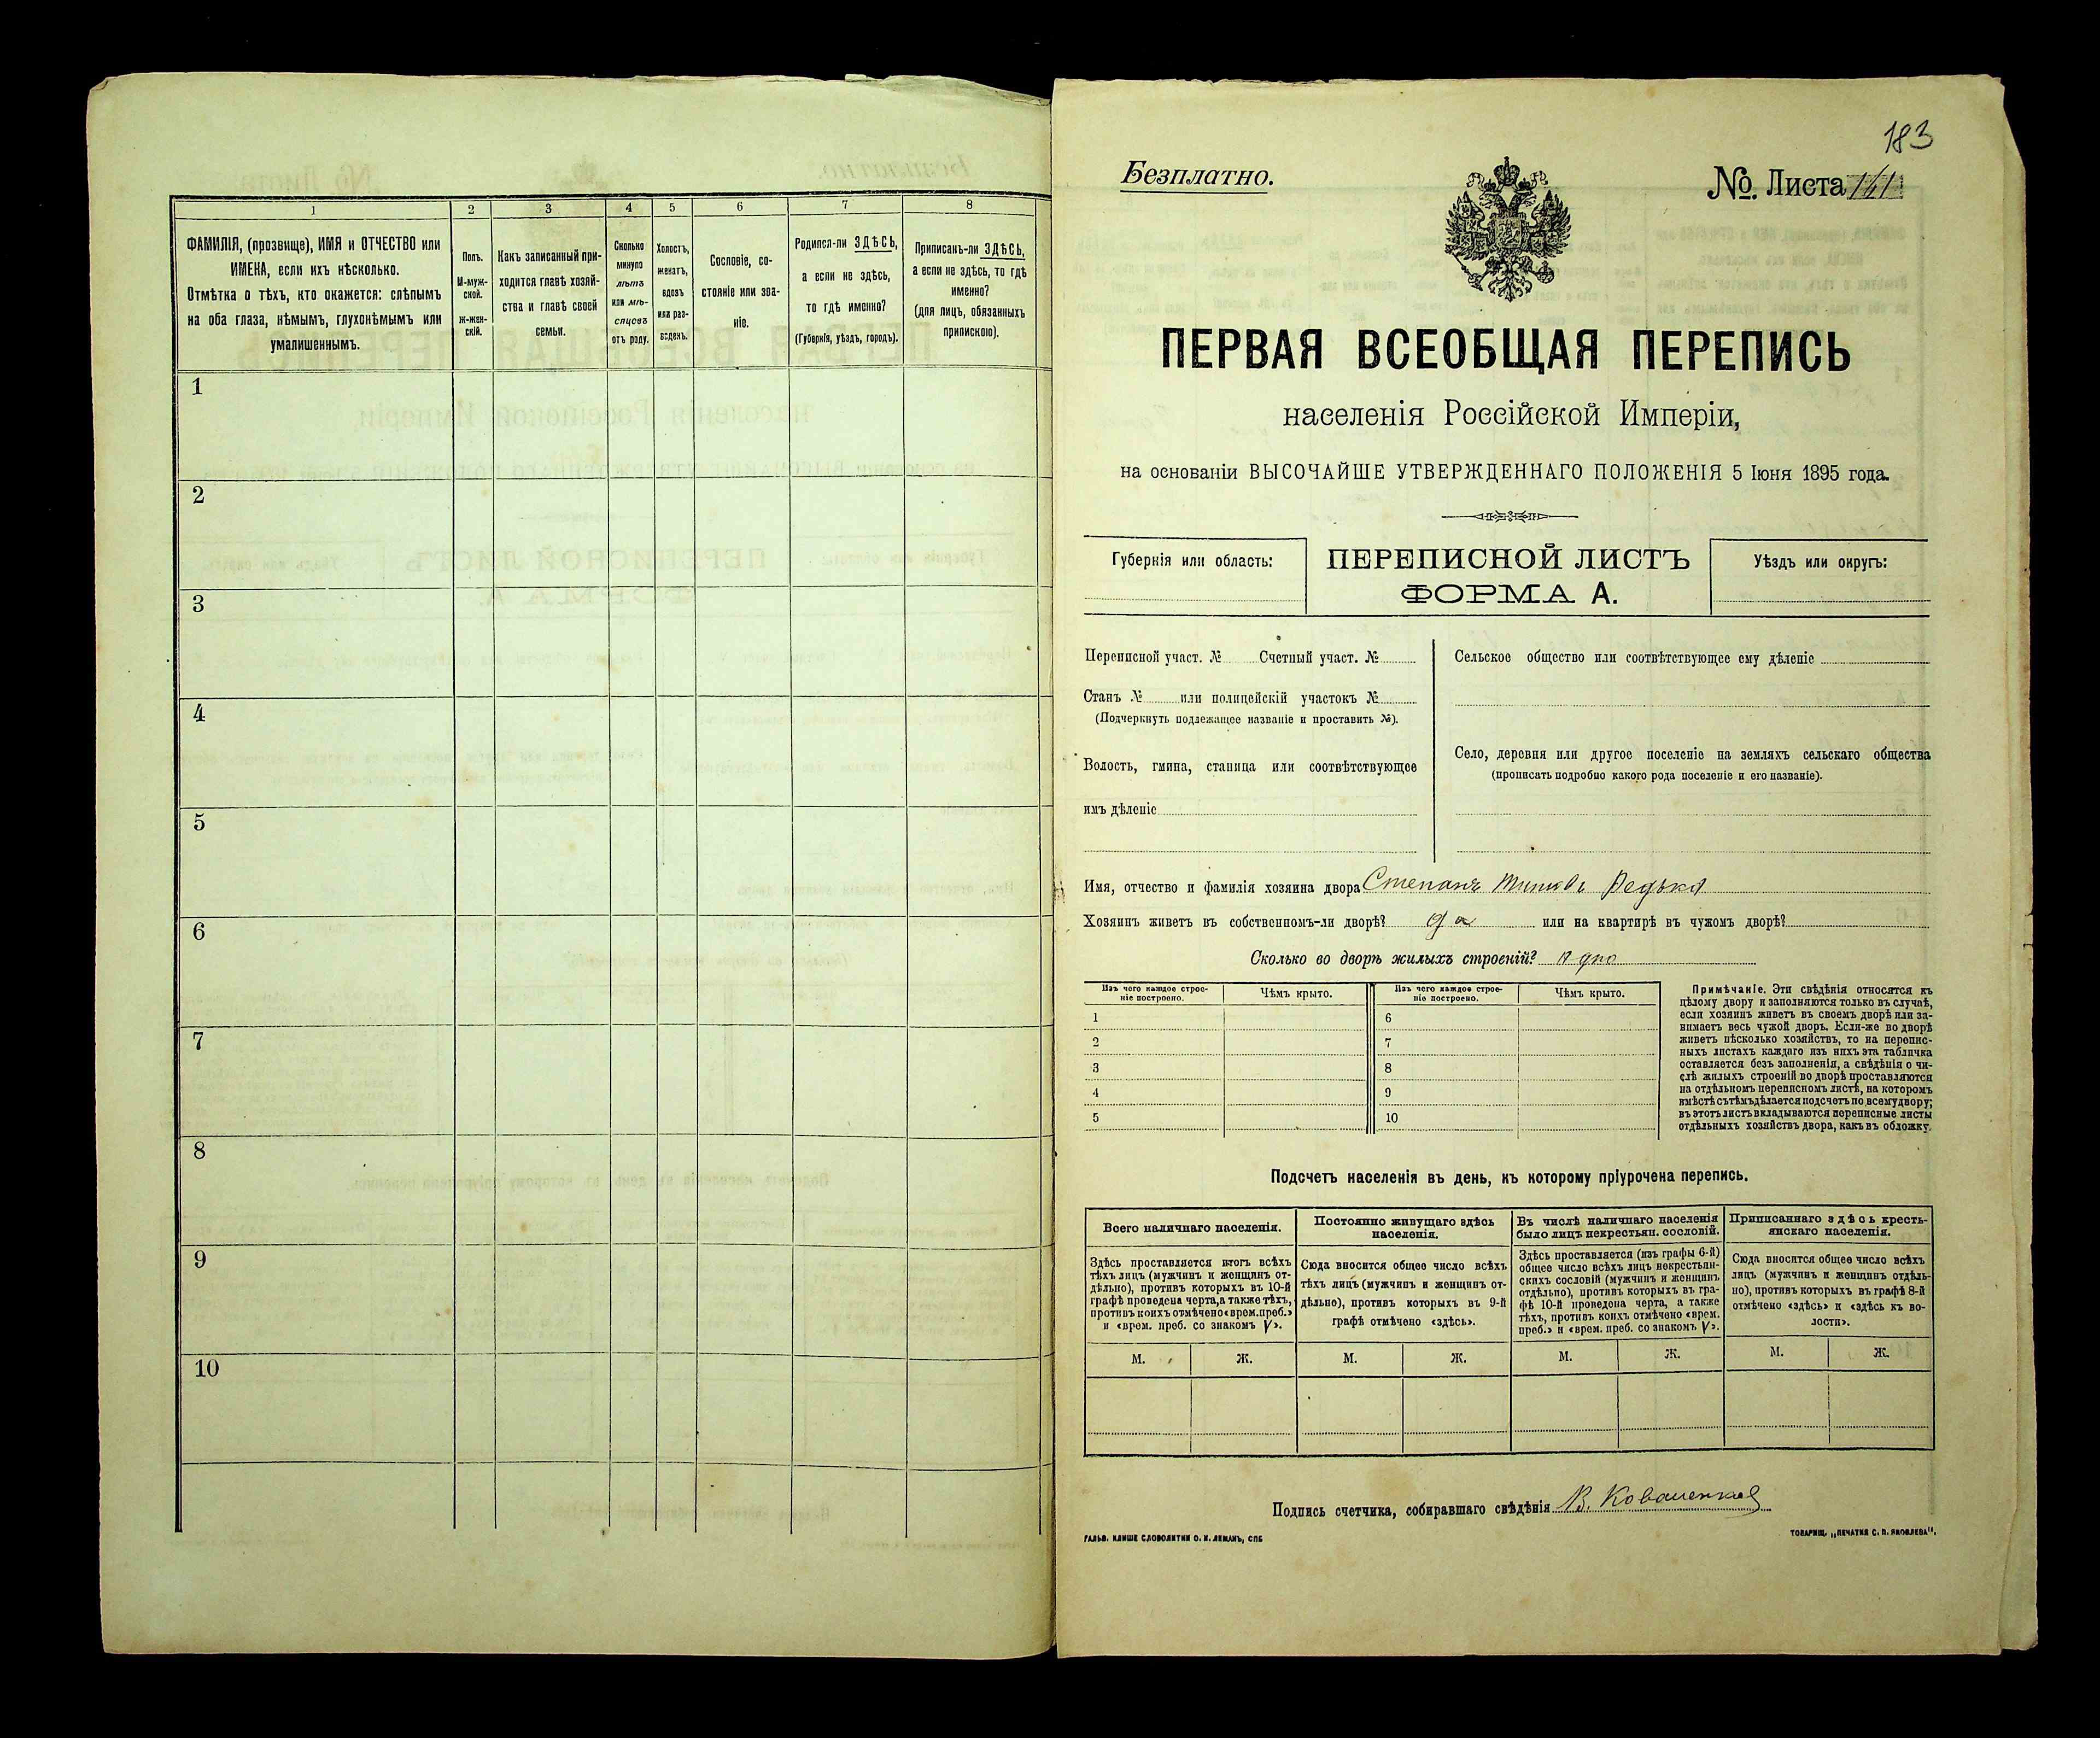 1
2
3
4
5
6
7
8
ФАМИЛІЯ, (прозвище), ИМЯ и ОТЧЕСТВО или
ИМЕНА, если ихъ нѣсколько.
Отмѣтка о тѣхъ, кто окажется: слѣпымъ
на оба глаза, нѣмымъ, глухонѣмымъ или
умалишеннымъ.
Полъ.
М-муж-
ской.
Ж-жен-
скій.
Какъ записанный при-
ходится главѣ хозяй-
ства и главѣ своей
семьи.
Сколько
минуло
лѣтъ
или мѣ-
сяцевъ
отъ роду.
Холостъ,
женатъ,
вдовъ
или раз-
веденъ.
Сословіе, со-
стояніе или зва-
ніе.
Родился-ли ЗДѢСЬ,
а если не здѣсь,
то гдѣ именно?
(Губернія, уѣздъ, городъ).
Приписанъ-ли ЗДѢСЬ,
а если не здѣсь, то гдѣ
именно?
(для лицъ, обязанныхъ
припискою).
1
2
3
4
5
6
7
8
9
10
183
Безплатно.
№ Листа 141
ПЕРВАЯ ВСЕОБЩАЯ ПЕРЕПИСЬ
населенія Россійской Имперіи,
на основаніи ВЫСОЧАЙШЕ УТВЕРЖДЕННАГО ПОЛОЖЕНІЯ 5 Іюня 1895 года.
Губернія или область:
ПЕРЕПИСНОЙ ЛИСТЪ
ФОРМА А.
Уѣздъ или округъ:
Переписной участ. № Счетный участ. №
Станъ № или полицейскій участокъ №
(Подчеркнуть подлежащее названіе и проставить №).
Волость, гмина, станица или соотвѣтствующее
имъ дѣленіе
Сельское общество или соотвѣтствующее ему дѣленіе
Село, деревня или другое поселеніе на земляхъ сельскаго общества
(прописать подробно какого рода поселеніе и его названіе).
Имя, отчество и фамилія хозяина двора Степанъ Редька
Хозяинъ живетъ въ собственномъ-ли дворѣ? да или на квартирѣ въ чужомъ дворѣ?
Сколько во дворѣ жилыхъ строеній? Адно
Изъ чего каждое строе-
ніе построено.
Чѣмъ крыто.
Изъ чего каждое строе-
ніе построено.
Чѣмъ крыто.
1
6
2
7
3
8
4
9
5
10
Примѣчаніе. Эти свѣдѣнія относятся къ
цѣлому двору и заполняются только въ случаѣ,
если хозяинъ живетъ въ своемъ дворѣ или за-
нимаетъ весь чужой дворъ. Если-же во дворѣ
живетъ нѣсколько хозяйствъ, то на перепис-
ныхъ листахъ каждаго изъ нихъ эта табличка
оставляется безъ заполненія, а свѣдѣнія о чи-
слѣ жилыхъ строеній во дворѣ проставляются
на отдѣльномъ переписномъ листѣ, на которомъ
вмѣстѣ съ тѣмъ дѣлается подсчетъ по всему двору;
въ этотъ листъ вкладываются переписные листы
отдѣльныхъ хозяйствъ двора, какъ въ обложку.
Подсчетъ населенія въ день, къ которому пріурочена перепись.
Всего наличнаго населенія.
Постоянно живущаго здѣсь
населенія.
Въ числѣ наличнаго населенія
было лицъ некрестьян. сословій.
Приписаннаго здѣсь кресть-
янскаго населенія.
Здѣсь проставляется итогъ всѣхъ
тѣхъ лицъ (мужчинъ и женщинъ от-
дѣльно), противъ которыхъ въ 10-й
графѣ проведена черта, а также тѣхъ,
противъ коихъ отмѣчено «врем. преб.»
и «врем. преб. со знакомъ V».
Сюда вносится общее число всѣхъ
тѣхъ лицъ (мужчинъ и женщинъ от-
дѣльно), противъ которыхъ въ 9-й
графѣ отмѣчено «здѣсь».
Здѣсь проставляется (изъ графы 6-й)
общее число всѣхъ лицъ некрестьян-
скихъ сословій (мужчинъ и женщинъ
отдѣльно), противъ которыхъ въ гра-
фѣ 10-й проведена черта, а также
тѣхъ, противъ коихъ отмѣчено «врем.
преб.» и «врем. преб. со знакомъ V».
Сюда вносится общее число всѣхъ
лицъ (мужчинъ и женщинъ отдѣль-
но), противъ которыхъ въ графѣ 8-й
отмѣчено «здѣсь» и «здѣсь къ во-
лости».
М. Ж. М. Ж. М. Ж. М. Ж.
Подпись счетчика, собиравшаго свѣдѣнія В.
ГАЛЬВ. КЛИШЕ СЛОВОЛИТНИ О. И. ЛЕМАНЪ, СПБ
ТОВАРИЩ. „ПЕЧАТНЯ С. П. ЯКОВЛЕВА".